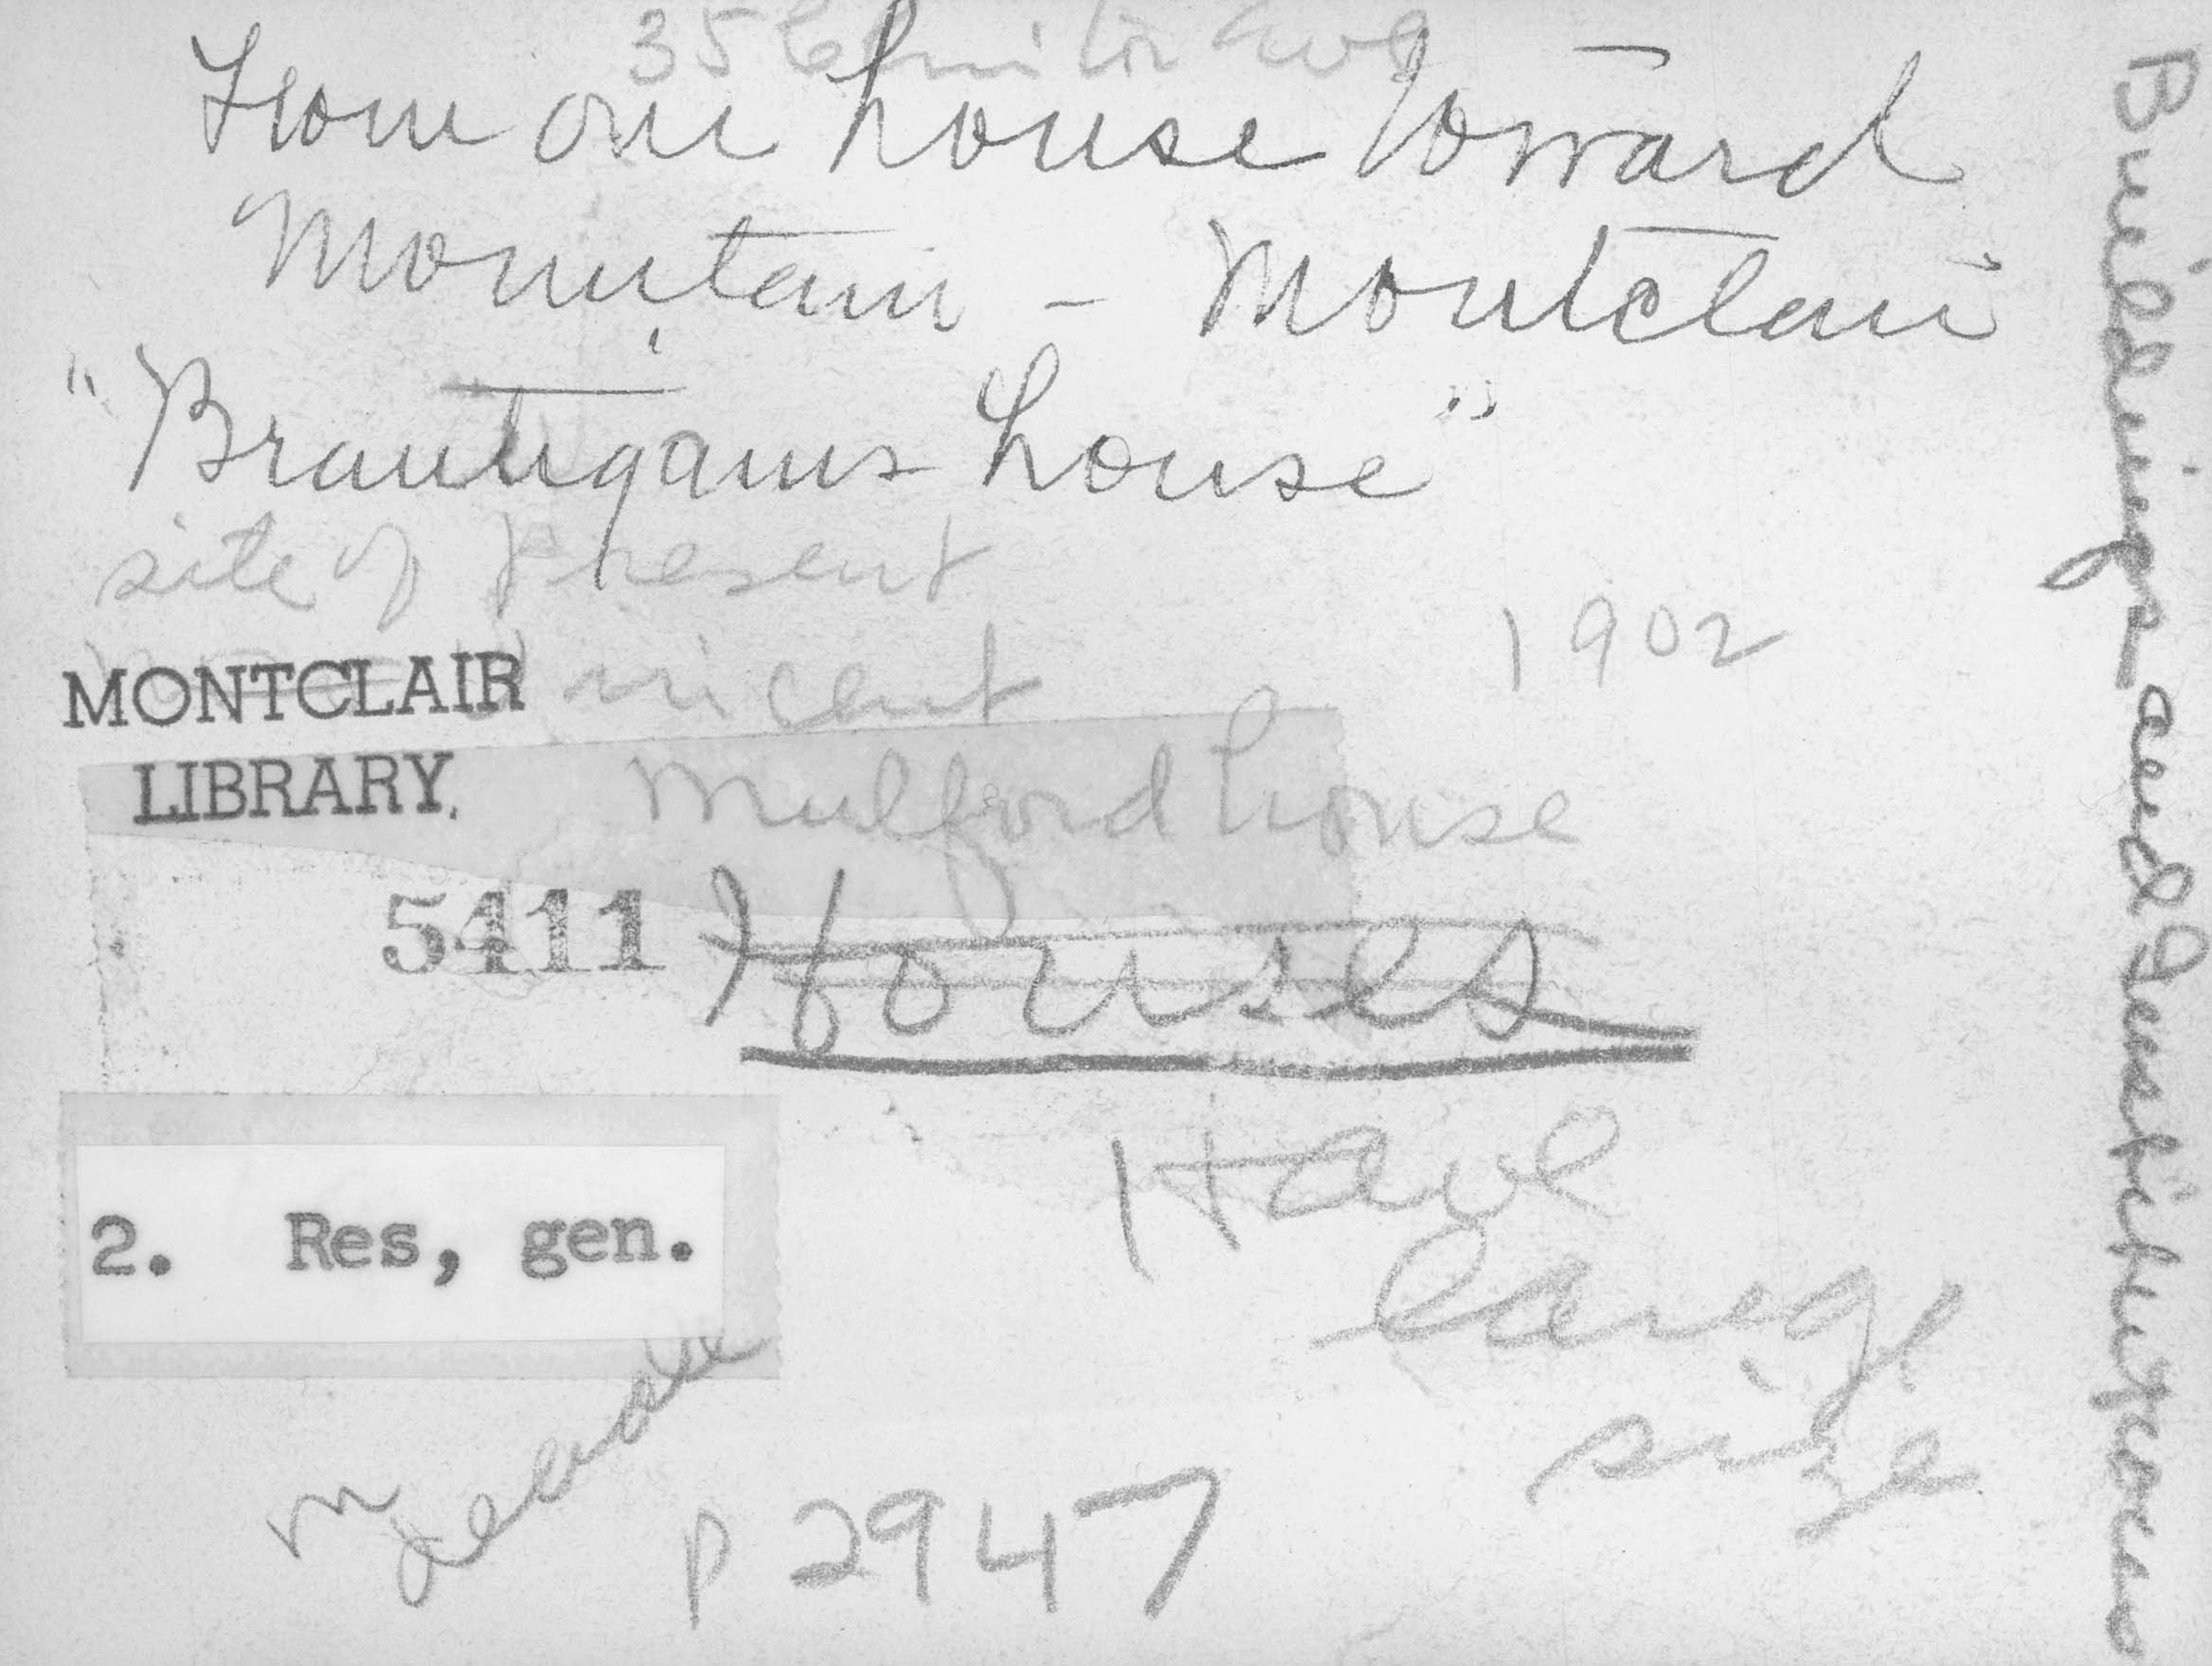 35
From our house toward
Mountain - Montclair
"Brautigams house"
site of present
Vincent
1902
MONTCLAIR
LIBRARY.
Mulford house
5411
Houses
2. Res, gen.
Have
large
size
M
decade
P 2947
Buildings and Institutions